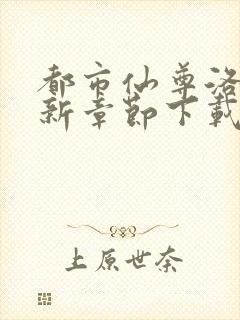 都市仙尊洛
新章节下载
上原世奈